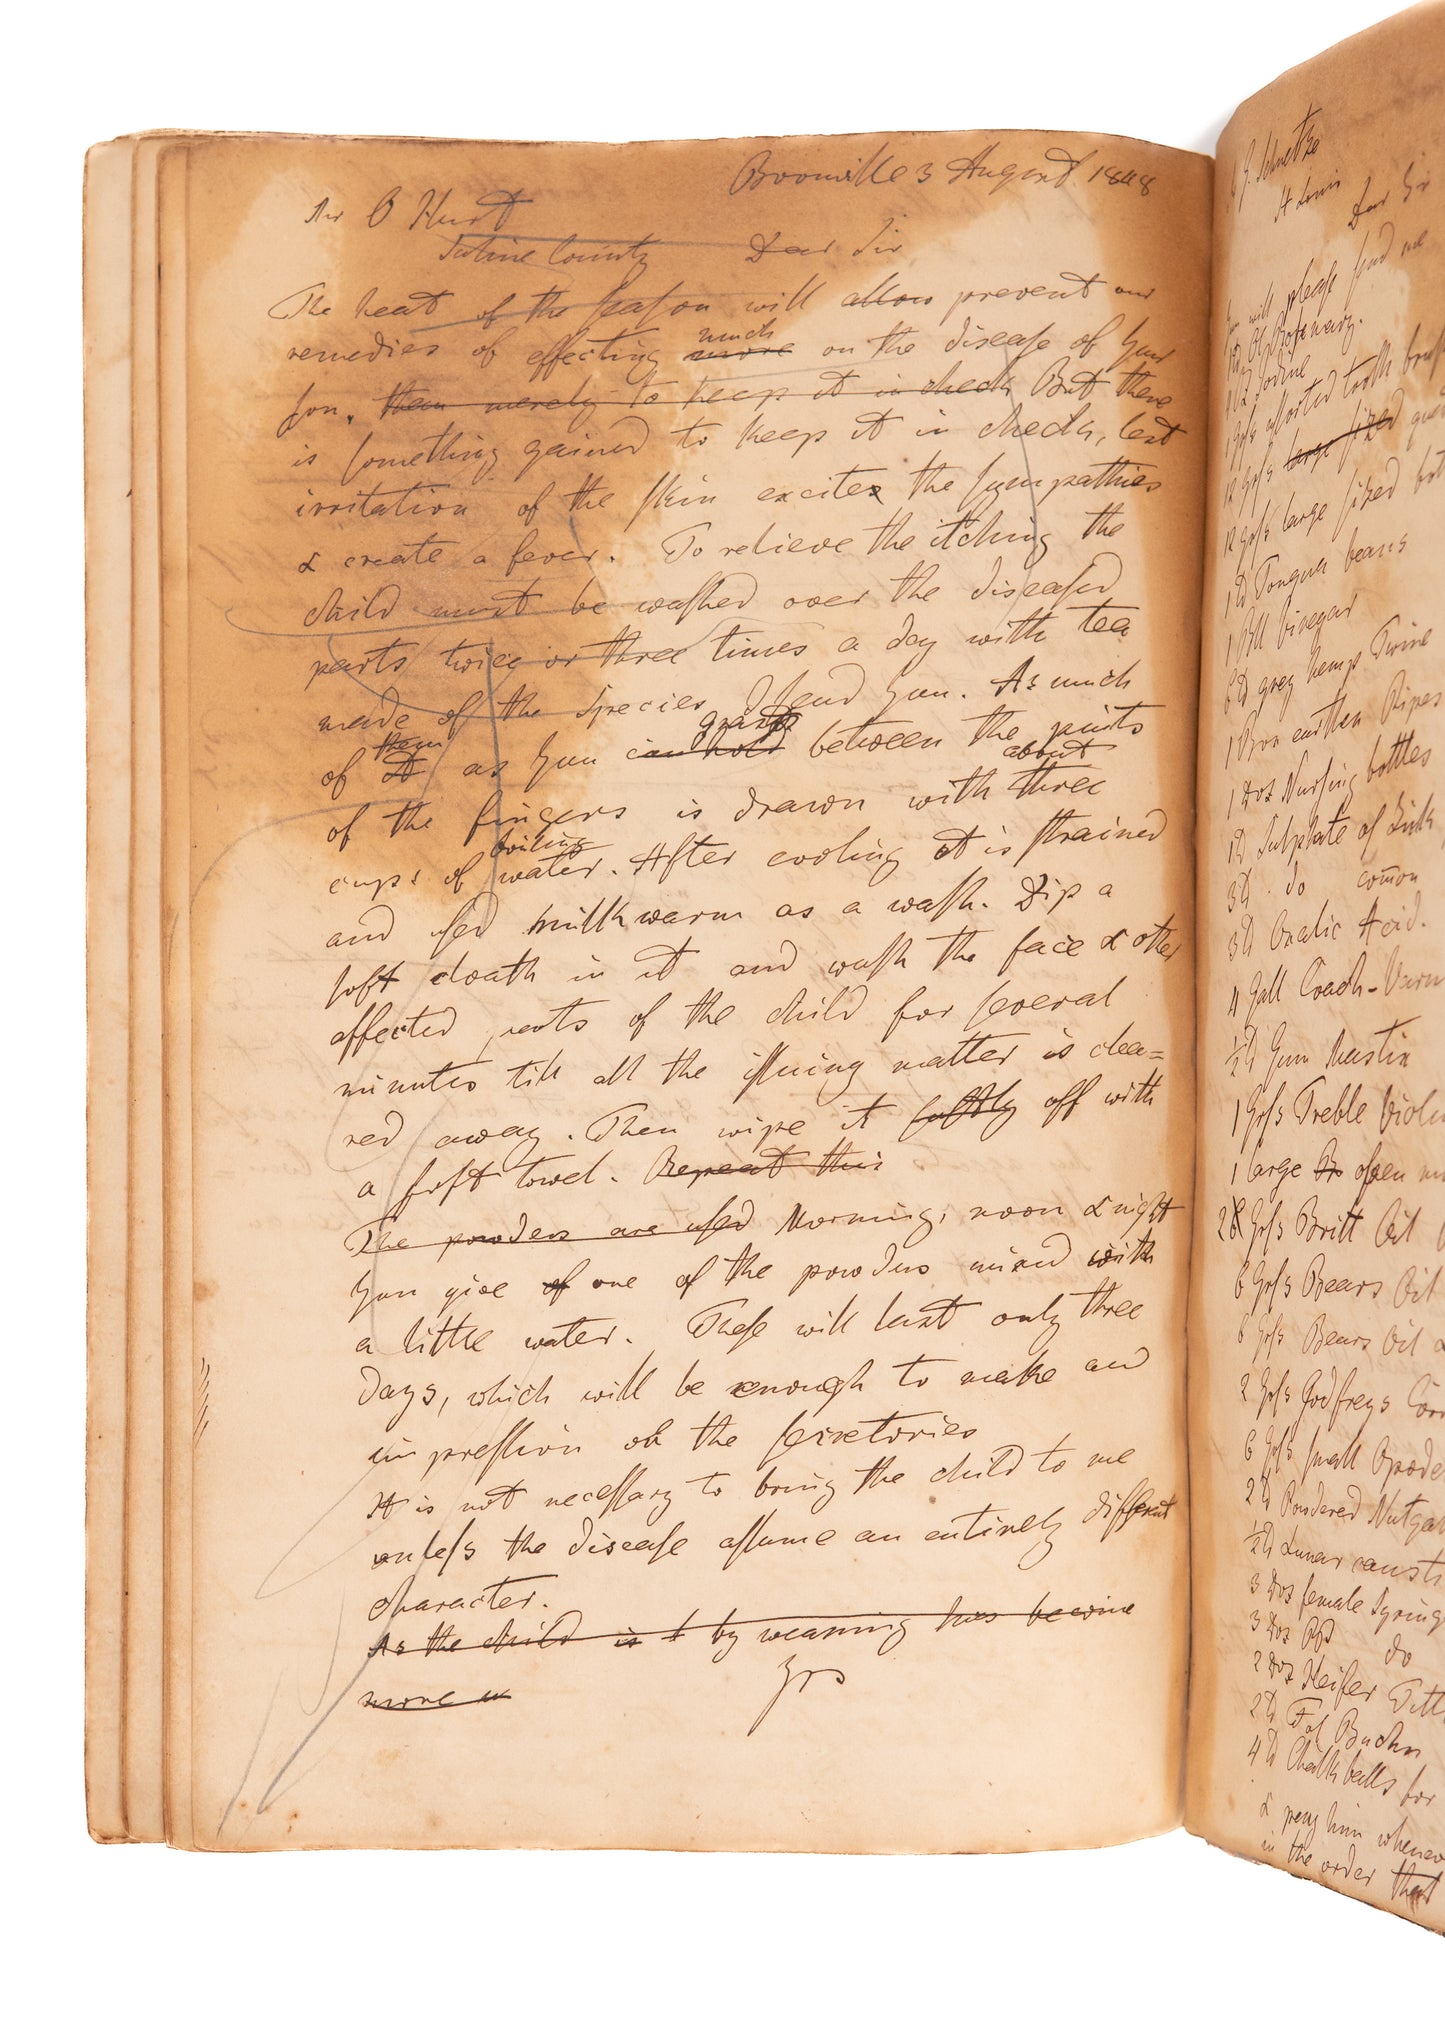 Boonville 3 August 1848
Mr O Hurt
Saline County Dear Sir
The heat of the season will allow prevent our
remedies of effecting more much on the disease of your
son, than merely to keep it in check But there
is something gained to keep it in check, lest
irritation of the skin excites the sympathies
& create a fever. To relieve the itching the
child must be washed over the diseased
parts twice or three times a day with tea
made of the species I send you. As much
of it them as you can hold grasp between the points
of the fingers is drawn with about three
cups of boiling water. After cooling it is strained
and used milkwarm as a wash. Dip a
soft cloath in it and wash the face & other
affected parts of the child for several
minutes till all the issuing matter is clea=
red away. Then wipe it softly off with
a soft towel. Repeat this
The powders are used Morning, noon & night
you give of one of the powders mixed with
a little water. These will last only three
days, which will be enough to make an
impression on the secretories
It is not necessary to bring the child to me
unless the disease assume an entirely different
character.
As the child is by weaning has become
more
Yrs
St Louis
Dear Sir
will please send me
Rosemary.
Iodine
assorted tooth
12 Grs large sized
12 Grs large sized
1 lb Tonqua beans
1 Bll Vinegar
6 lb grey hemp Twine
1 Box earthen Pipes
1 Doz Nursing bottles
1 lb Sulphate of Zink
3 lb do comon
3 lb Oxalic Acid.
4 Gall Coach-Varn
½ lb Gum Mastix
1 Grs Treble Violin
1 large open
Grs Britt Oil
6 Grs Bears Oil
6 Grs Bears Oil
2 Grs Godfreys Cor
6 Grs small Opode
2 lb Powdered Nutgal
½ lb Lunar causti
3 Doz female Syring
3 Doz do
2 Doz Heifer
2 lb Fol Buchu
4 lb Chalk balls for
& pay him whenev
in the order that